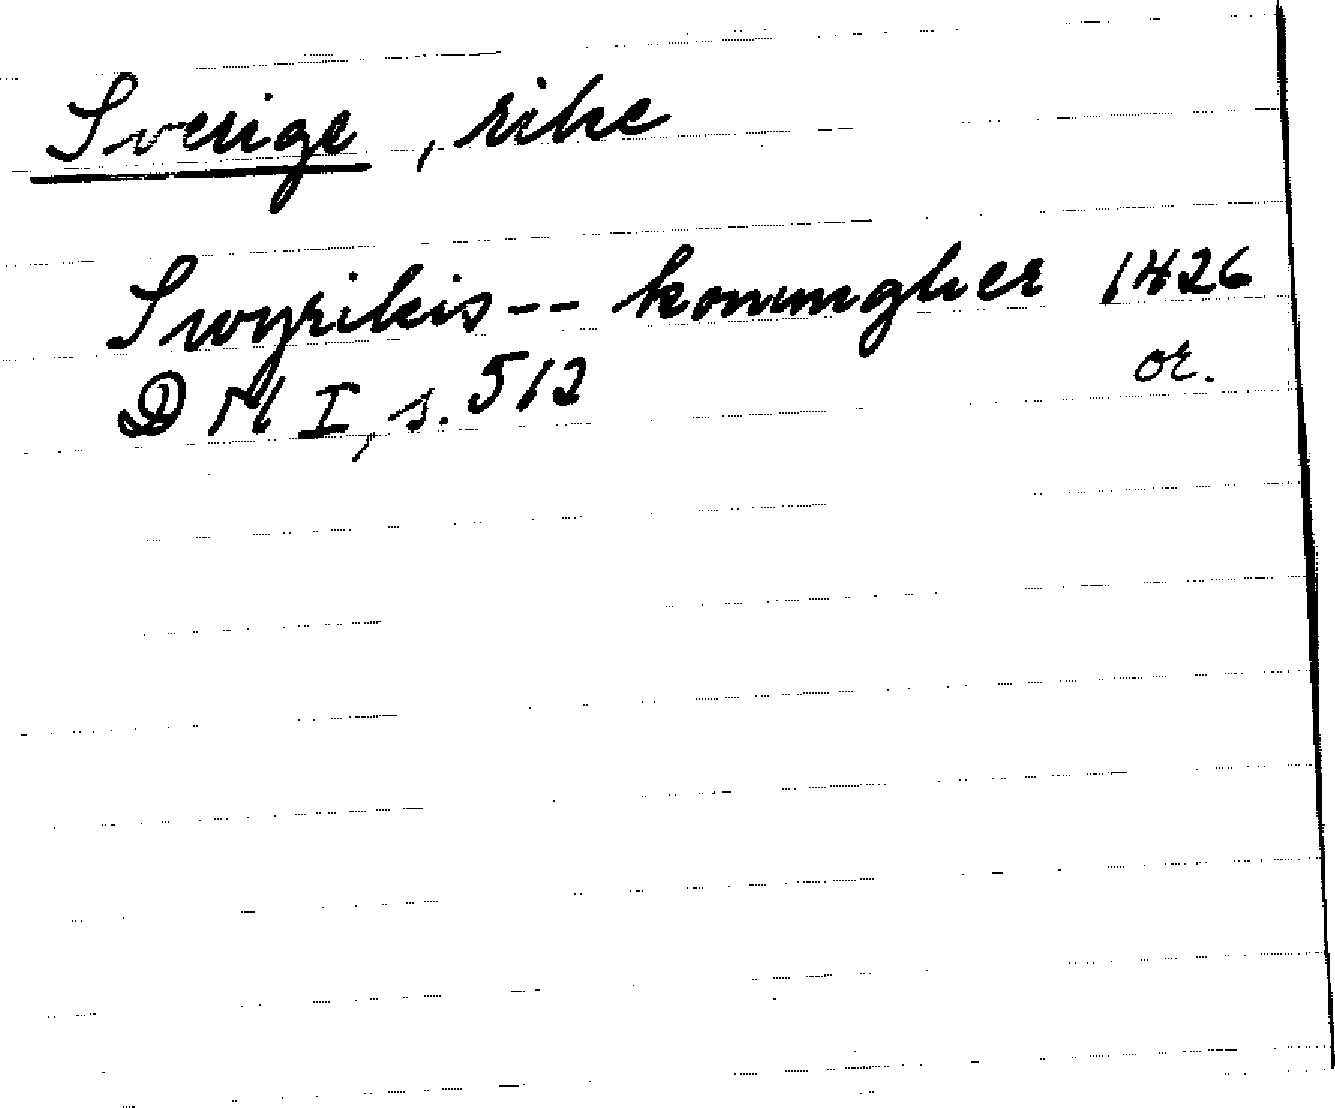 Sverige, rike
Swyrikis -- konungher 1426
DN I, s. 512 or.